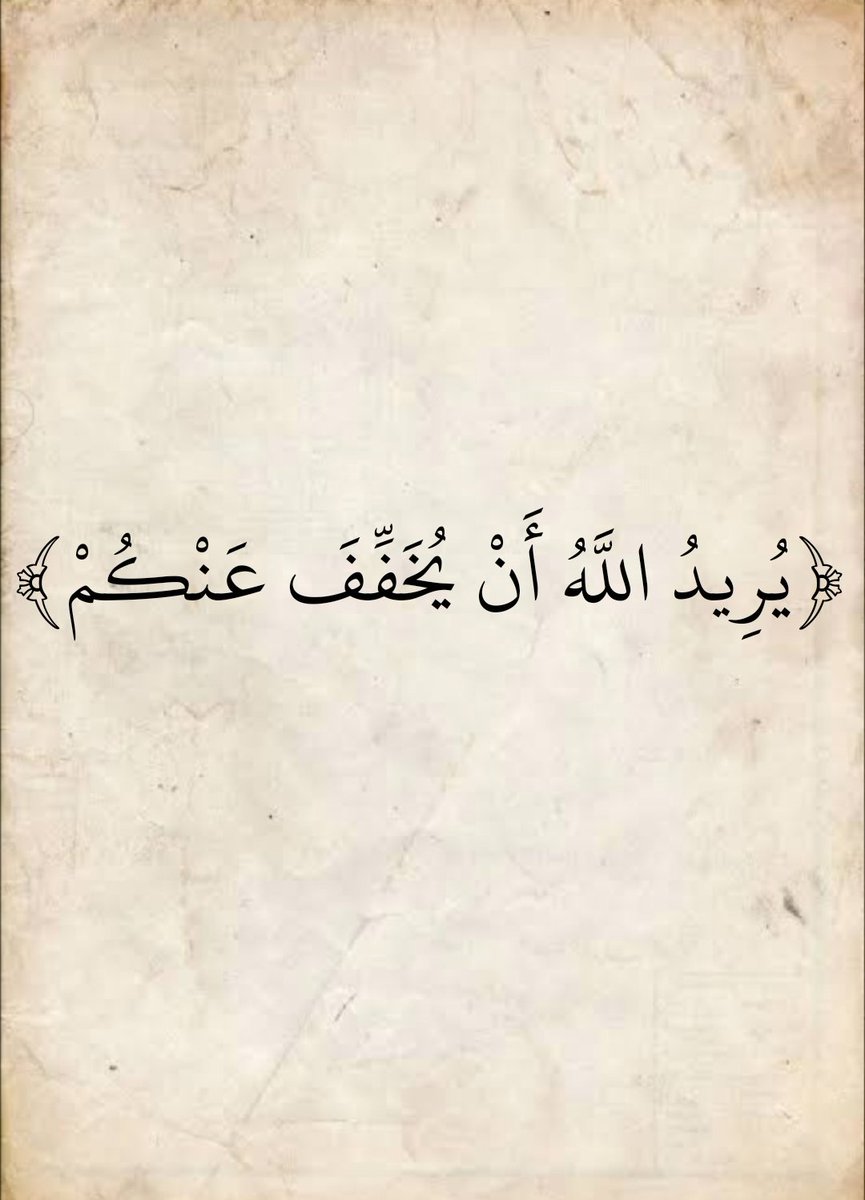 ﴿يُرِيدُ اللَّهُ أَنْ يُخَفِّفَ عَنْكُمْ﴾